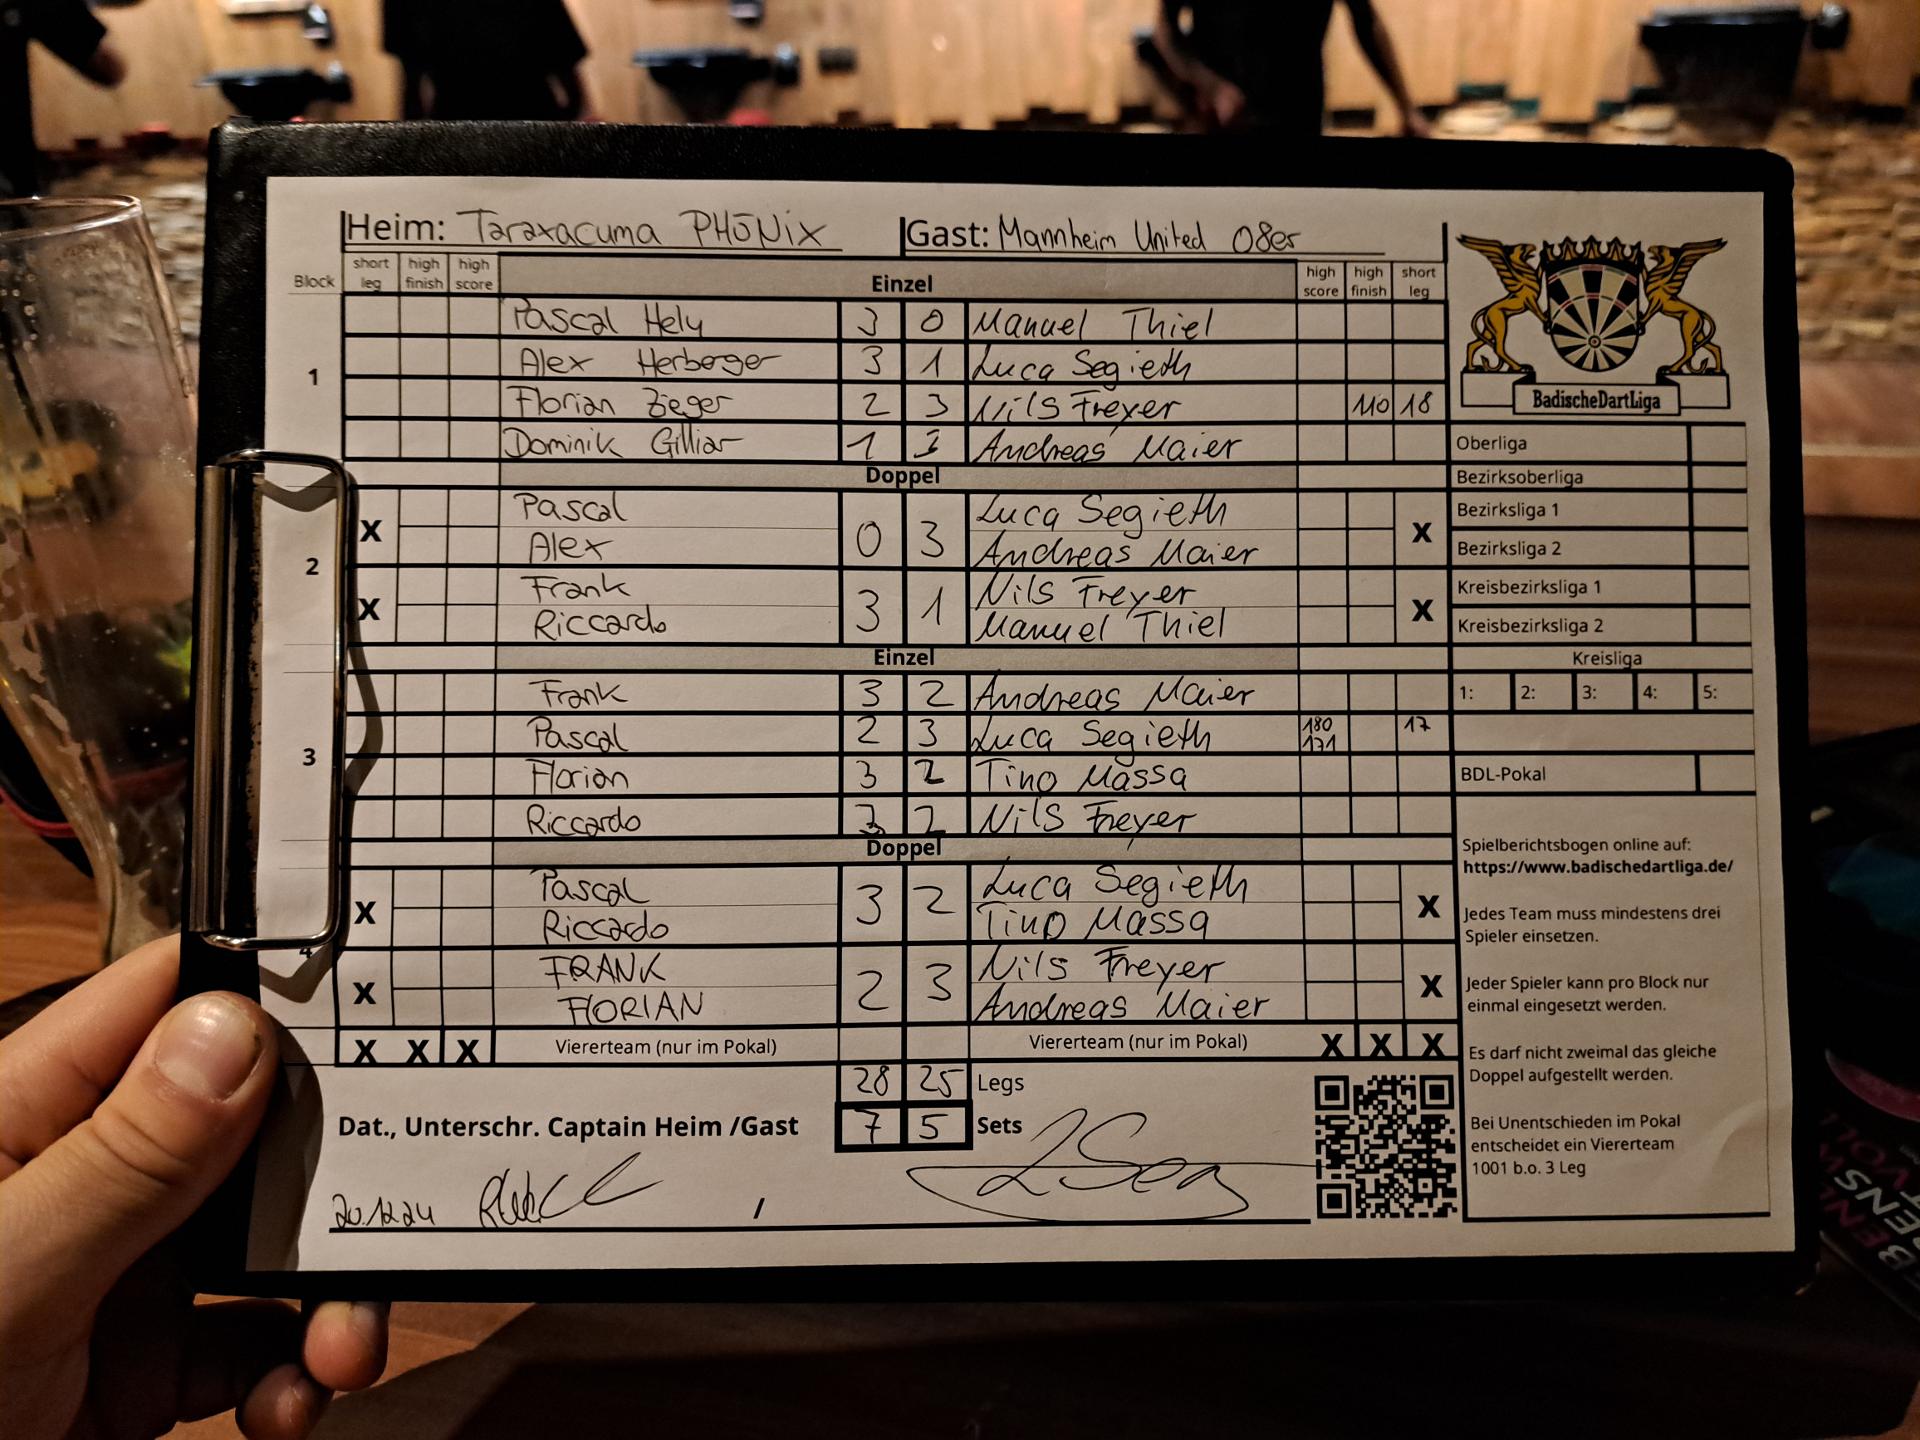 Heim: Taraxacuma PHÖNix Gast: Mannheim United 08er
Block short leg high finish high score Einzel high score high finish short leg
1
Pascal Hely 3 0 Manuel Thiel
Alex Herberger 3 1 Luca Segieth
Florian Zieger 2 3 Nils Freyer 110 18
Dominik Gilliar 1 3 Andreas Maier
Doppel
2
X Pascal 0 3 Luca Segieth X
Alex Andreas Maier
X Frank 3 1 Nils Freyer X
Riccardo Manuel Thiel
Einzel
3
Frank 3 2 Andreas Maier
Pascal 2 3 Luca Segieth 180 17
171
Florian 3 2 Tino Massa
Riccardo 3 2 Nils Freyer
Doppel
4
X Pascal 3 2 Luca Segieth X
Riccardo Tino Massa
X FRANK 2 3 Nils Freyer X
FLORIAN Andreas Maier
X X X Viererteam (nur im Pokal) Viererteam (nur im Pokal) X X X
28 25 Legs
Dat., Unterschr. Captain Heim /Gast 7 5 Sets
20.12.24 /
BadischeDartLiga
Oberliga
Bezirksoberliga
Bezirksliga 1
Bezirksliga 2
Kreisbezirksliga 1
Kreisbezirksliga 2
Kreisliga
1: 2: 3: 4: 5:
BDL-Pokal
Spielberichtsbogen online auf:
https://www.badischedartliga.de/
Jedes Team muss mindestens drei
Spieler einsetzen.
Jeder Spieler kann pro Block nur
einmal eingesetzt werden.
Es darf nicht zweimal das gleiche
Doppel aufgestellt werden.
Bei Unentschieden im Pokal
entscheidet ein Viererteam
1001 b.o. 3 Leg